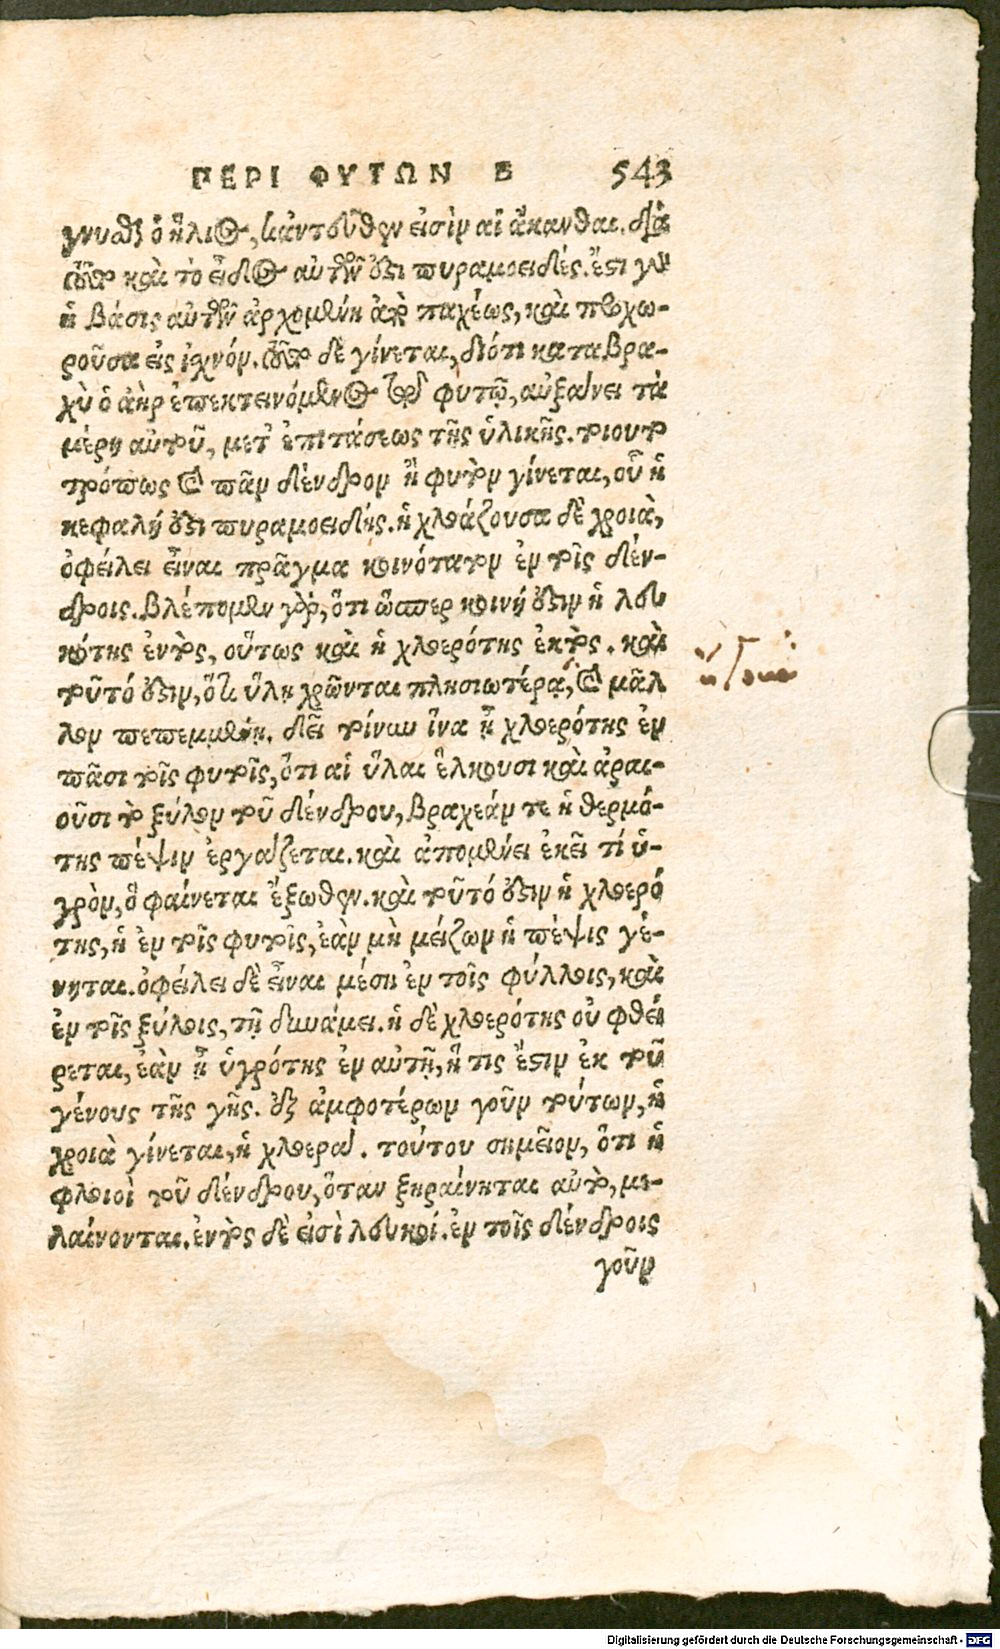 ΠΕΡΙ ΦΥΤΩΝ Β 543
γνυσιν ὁ ἥλιος, κἀντεῦθεν εἰσὶν αἱ ἄκανθαι. διὰ
τοῦτο καὶ τὸ εἶδος αὐτῶν ὅτι πυραμοειδές. ἔστι γὰρ
ἡ βάσις αὐτῶν ἀρχομένη ἀπὸ παχέως, καὶ προχω-
ροῦσα εἰς ἰχνόν. τοῦτο δὲ γίνεται, διότι καταβρα-
χὺ ὁ ἀὴρ ἐπεκτεινόμενος τοῦ φυτοῦ, αὐξάνει τὰ
μέρη αὐτοῦ, μετ' ἐπιτάσεως τῆς ὑλικῆς. τοιουτο
τρόπως καὶ πᾶν δένδρον ἢ φυτὸν γίνεται, οὗ ἡ
κεφαλή ἐστι πυραμοειδής. ἡ χλοάζουσα δὲ χροιὰ,
ὀφείλει εἶναι πρᾶγμα κοινότατον ἐν τοῖς δέν-
δροις. βλέπομεν γὰρ, ὅτι ὥσπερ κοινή ἐστιν ἡ λευ
κότης ἐντὸς, οὕτως καὶ ἡ χλοερότης ἐκτὸς. καὶ
τοῦτό ἐστιν, ὅτι ὕλῃ χρῶνται πλησιωτέρᾳ, καὶ μᾶλ
λον πεπεμμένῃ. δεῖ τοίνυν ἵνα ᾖ χλοερότης ἐν
πᾶσι τοῖς φυτοῖς, ὅτι αἱ ὕλαι ἕλκουσι καὶ ἀραι-
οῦσι τὸ ξύλον τοῦ δένδρου, βραχεάν τε ἡ θερμό-
της πέψιν ἐργάζεται. καὶ ἀπομένει ἐκεῖ τί ὑ-
γρὸν, ὃ φαίνεται ἔξωθεν. καὶ τοῦτό ἐστιν ἡ χλοερό
της, ἡ ἐν τοῖς φυτοῖς, ἐὰν μὴ μείζων ἡ πέψις γέ-
νηται. ὀφείλει δὲ εἶναι μέση ἐν τοῖς φύλλοις, καὶ
ἐν τοῖς ξύλοις, τῇ δυνάμει. ἡ δὲ χλοερότης οὐ φθεί
ρεται, ἐὰν ᾖ ὑγρότης ἐν αὐτῇ, ἥ τις ἔστιν ἐκ τοῦ
γένους τῆς γῆς. ἐξ ἀμφοτέρων γοῦν τούτων, ἡ
χροιὰ γίνεται, ἡ χλοερά. τούτου σημεῖον, ὅτι ἡ
φλοιοὶ τοῦ δένδρου, ὅταν ξηραίνηται αὐτὸ, με-
λαίνονται. ἐντὸς δὲ εἰσὶ λευκοί. ἐν τοῖς δένδροις
γοῦν